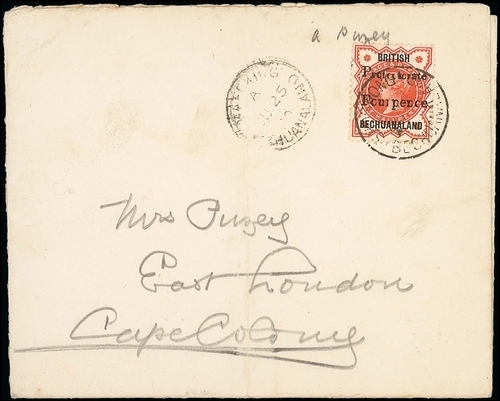 a Puzey
BRITISH
Protectorate
Fourpence
BECHUANALAND
MAFEKING
A
25
BECHUANALAND
Mrs Puzey
East London
Cape Colony